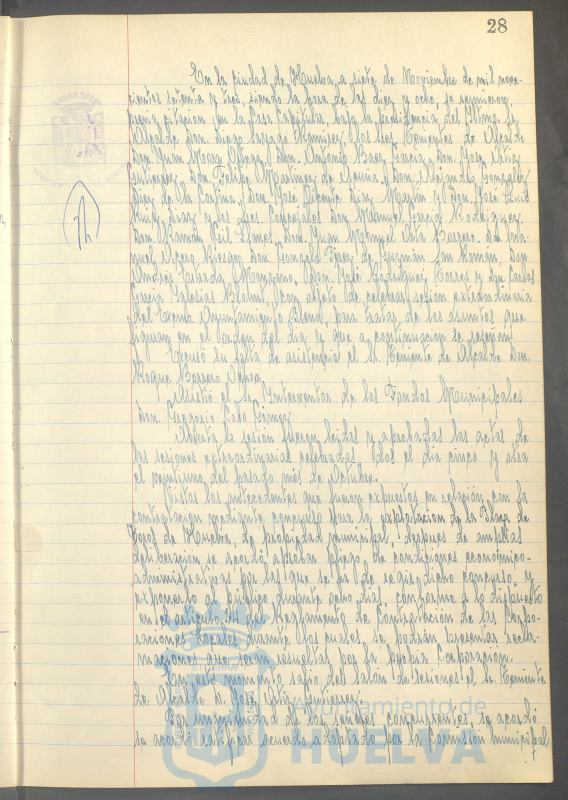 28
En la ciudad de Huelva, a siete de Noviembre de mil nove-
cientos setenta y tres, siendo la hora de las diez y ocho, se reunieron
previa citacion, en la Casa Capitular, bajo la presidencia del Iltmo. Sr.
Alcalde Don Diego Ramirez, los Sres. Tenientes de Alcalde
Don Juan Mora Don Antonio Baez Garcia, Don Jose Ortiz
Gutierrez, Don Felipe Martinez de Don Alejandro Gonzalez
Diez de la Don Vicente Diaz Martin y Don José Luis
Ruiz Diaz y los Sres. Concejales Don Manuel Garcia Rodriguez,
Don Ramón Llanes, Don Juan Manuel Vita Borrero, Don Ma-
nuel Don Gonzalo Perez de Guzmán San Román, Don
Andres Estrada Manzano, Don José Rodriguez Torres y Don Carlos
Garcia Iglesias con objeto de celebrar sesion extraordinaria
del Excmo Ayuntamiento Pleno, para tratar de los asuntos que
figuran en el orden del dia y que a continuacion se reseñan.
Excusó su falta de asistencia el Sr. Teniente de Alcalde Don
Roque Barrero Ochoa.
Asistió el Sr. Interventor de los Fondos Municipales
Don Gregorio Lobo Gomez.
Abierta la sesion fueron leidas y aprobadas las actas de
las sesiones extraordinarias celebradas dos el dia cinco y otra
el veintiuno del pasado mes de Octubre.
Vistos los antecedentes que fueron expuestos en relacion con la
contratacion mediante concurso para la explotacion de la Plaza de
Toros de Huelva, de propiedad municipal, despues de amplia
deliberacion se acordó, aprobar pliego de condiciones económico-
administrativas por las que se ha de regir dicho concurso y
exponerlo al publico durante ocho dias, conforme a lo dispuesto
en el articulo 24 del Reglamento de Contratacion de las Corpo-
raciones Locales, durante los cuales se podrán presentar recla-
maciones que seran resueltas por la propia Corporacion.
En este momento salió del salon de sesiones el Sr. Teniente
de Alcalde D. Jose Ortiz Gutierrez.
Por unanimidad de los señores concurrentes, se acordó
se acordó ratificar acuerdo adoptado por la Comision Municipal
Ayuntamiento de
HUELVA